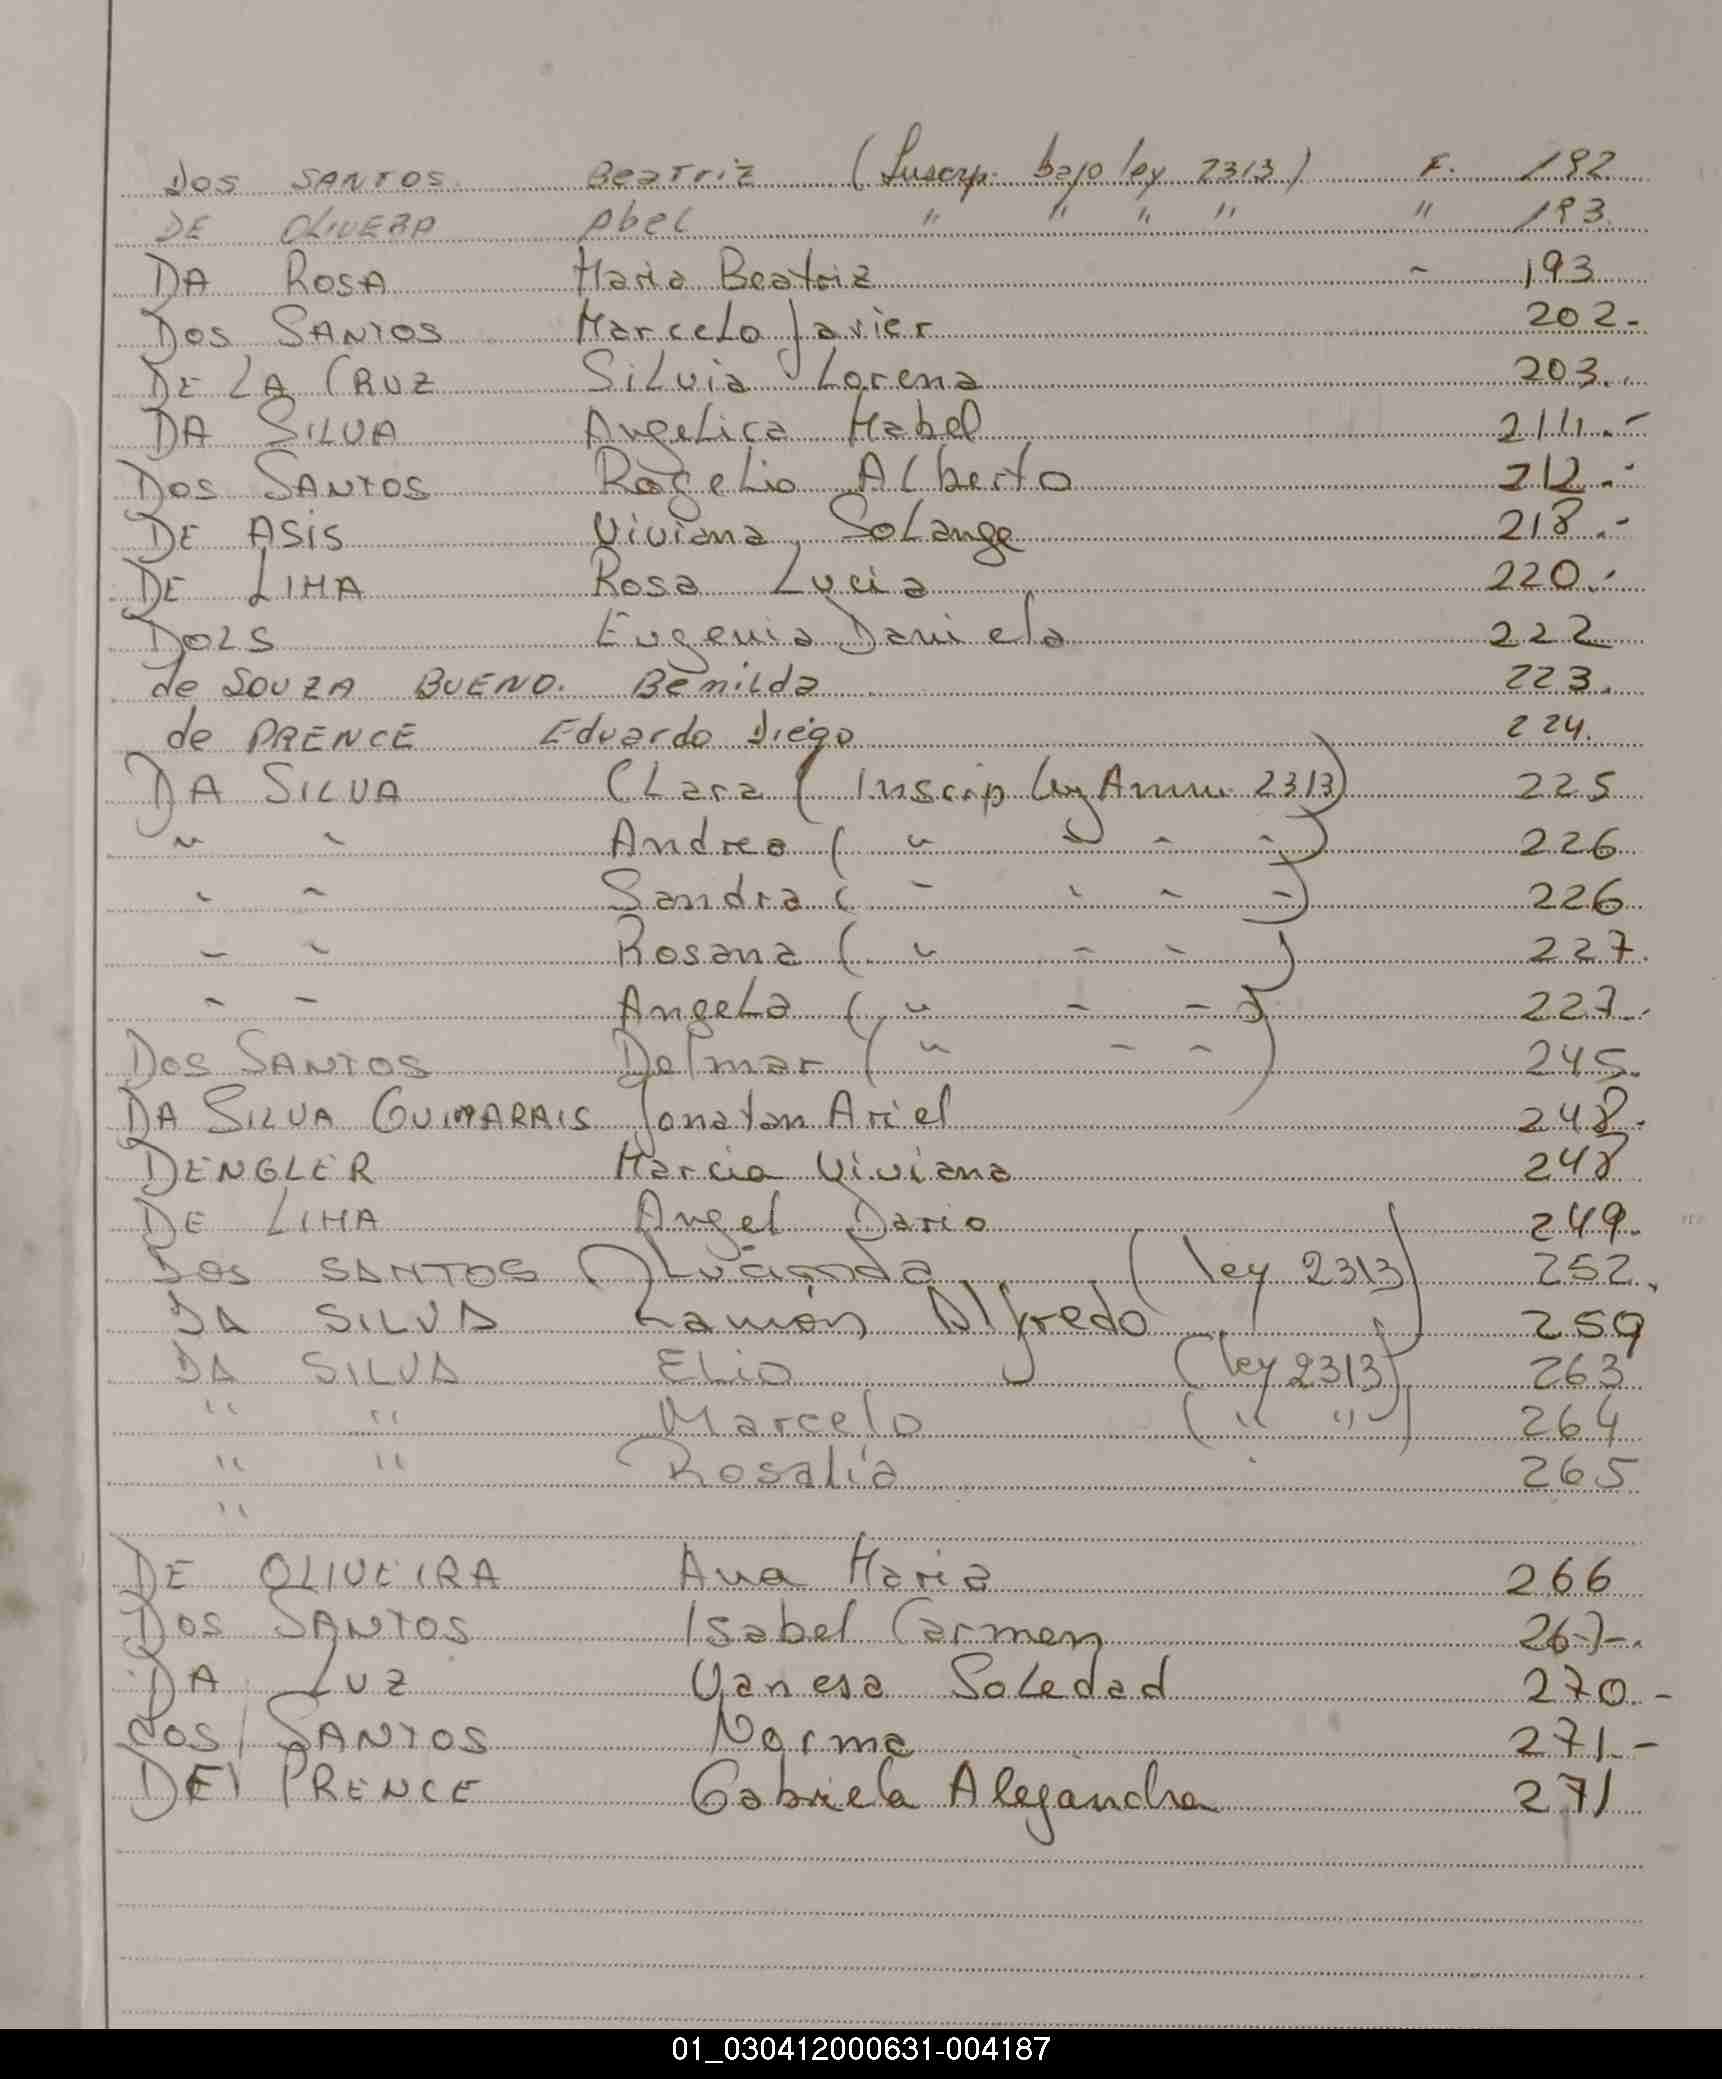 DOS SANTOS Beatriz (Inscrip. bajo ley 2313) F. 192
DE OLIVERA Abel " " " " " 193.
DA ROSA Maria Beatriz - 193
DOS SANTOS Marcelo Javier 202.-
DE LA CRUZ Silvia Lorena 203..
DA SILVA Angelica Mabel 211.-
DOS SANTOS Rogelio Alberto 212.-
DE ASIS Viviana Solange 218.-
DE LIMA Rosa Lucia 220.-
DOLS Eugenia Daniela 222
de SOUZA BUENO. Benilda 223.
de PRENCE Eduardo Diego 224.
DA SILVA Clara (Inscrip ley Amn. 2313) 225
" " Andrea ( " " " ") 226
" " Sandra ( " " " ") 226
" " Rosana ( " " " ) 227.
" " Angela ( " " " ) 227.-
DOS SANTOS Delmar ( " " " ) 245.
DA SILVA GUIMARAIS Jonatan Ariel 248.
DENGLER Marcia Viviana 248
DE LIMA Angel Dario 249.
DOS SANTOS Lucianda (ley 2313) 252.
DA SILVA Ramón Alfredo 259
DA SILVA Elio (ley 2313) 263
" " Marcelo ( " " ) 264
" " Rosalia 265
"
DE OLIVEIRA Ana Maria 266
DOS SANTOS Isabel Carmen 267-.
DA LUZ Vanesa Soledad 270.-
DOS SANTOS Norma 271.-
DE PRENCE Gabriela Alejandra 271
01_030412000631-004187